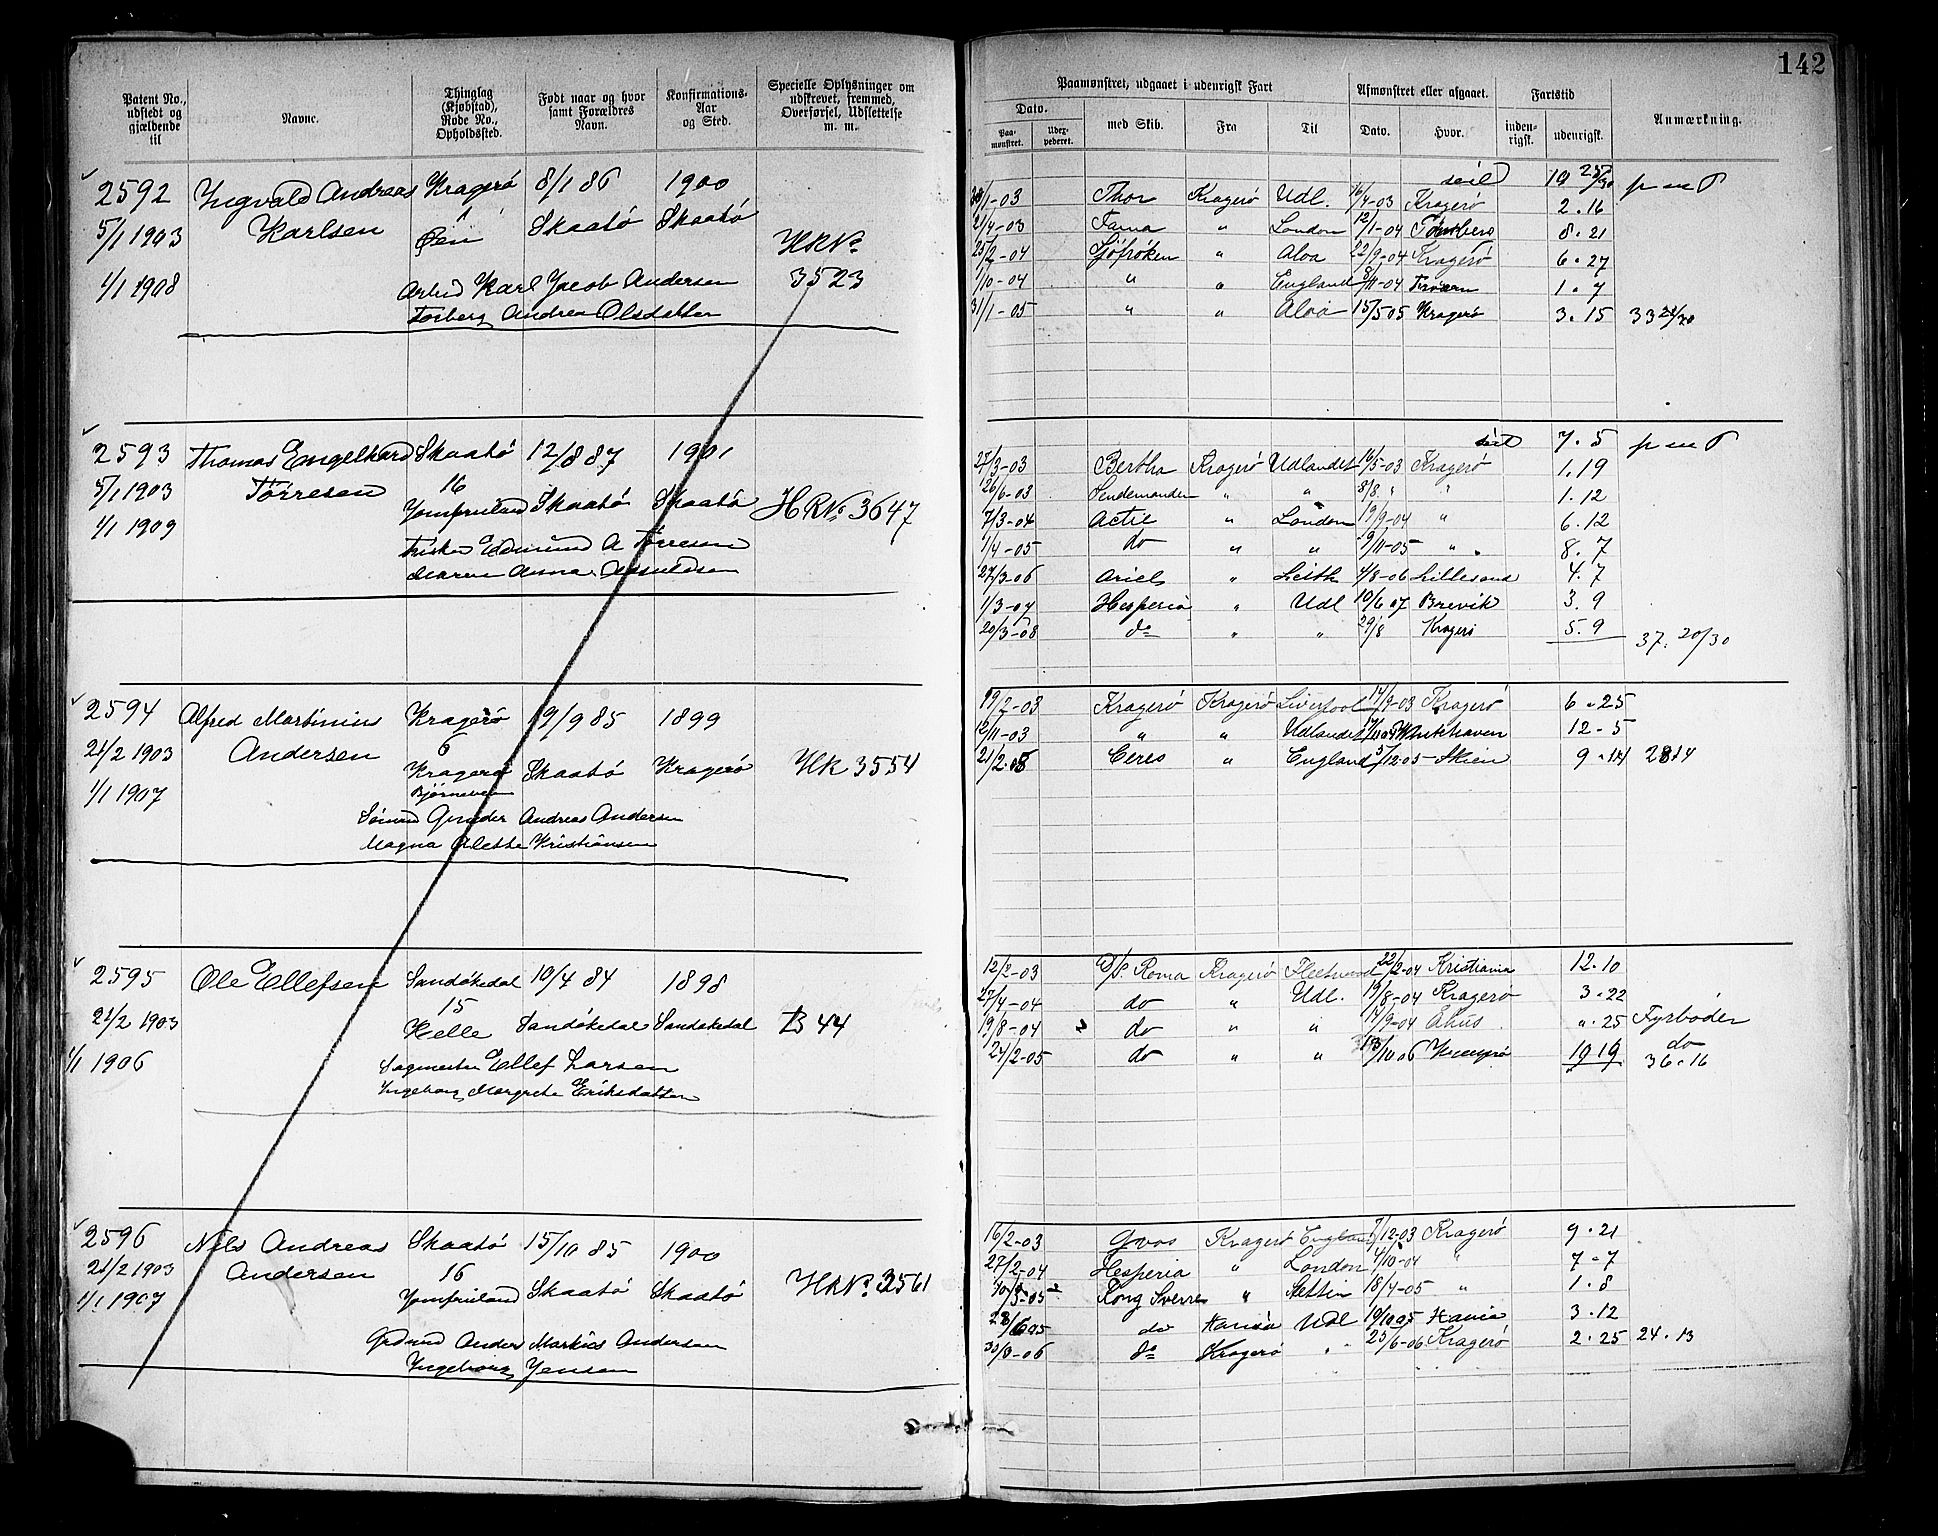 142
Patent No., udstedt og gjældende til
Navne.
Thinglag (Kjøbstad), Rode No., Opholdssted.
Født naar og hvor samt Forældres Navn.
Konfirmations- Aar og Sted.
Specielle Oplysninger om udskrevet, fremmed, Overførsel, Udslettelse m. m.
Paamønstret, udgaaet i udenrigsk Fart
Afmønstret eller afgaaet.
Fartstid
Anmærkning.
Dato.
Paa- mønstret.
med Skib.
Fra
Til
Dato.
Hvor.
inden- rigsk.
udenrigsk.
2592 Ingvald Andreas Kragerø 8/1 86 1900
5/1 1903 Karlsen Øen Skaatø Skaatø
HRNo
1/1 1908 Arbed Karl Jacob Andersen 3523
Andrea Olsdatter
seil
1/1-03 Thor Kragerø Udl. 16/4-03 Kragerø 2.16
21/4-03 Fama " London 12/1-04 8.21
25/2-04 Sjöfröken " Aloa 22/9-04 Kragerø 6.27
1/10-04 " " England 8/11-04 1.7
31/1-05 " " Aloa 15/5 05 Kragerø 3.15
2593 Thomas Engelhard Skaatø 12/8 87 1901
5/1 1903 Tørresen 16
Jomfruland Skaatø Skaatø HRNo 3647
1/1 1909
Fisker Edmund A Tørresen
Maren Anna
seil 7.5
25/3-03 Bertha Kragerø Udlandet 16/5-03 Kragerø 1.19
26/6-03 " " 8/8 " " 1.12
7/3-04 Actie " London 19/9-04 " 6.12
1/4-05 do " " 9/11-05 " 8.7
27/3-06 Ariel " Leith 4/8-06 Lillesand 4.7
1/3-07 Hesperia " Udl 10/6 07 Brevik 3.9
20/3-08 do " " 29/8 Kragerø 5.9 37. 20/30
2594 Alfred Martinius Kragerø 19/9 85 1899
21/2 1903 Andersen 6
Kragerø Skaatø Kragerø HR 3554
1/1 1907
Gunder Andreas Andersen
Magna Alette Kristiansen
19/2-03 Kragerø Kragerø Liverpool 14/9-03 Kragerø 6.25
12/11-03 " " Udlandet 12-5
Ceres " England 5/12-05 Skien
2595 Ole Ellefsen Sandøkedal 10/4 84 1898
21/2 1903 15
Helle Sandøkedal Sandøkedal B 44
1/1 1906
Ellef Larsen
Ingeborg Margrethe Eriksdatter
12/2-03 D/S. Roma Kragerø Fleetwood 22/2-04 Kristiania 12.10
27/4-04 do " Udl. 19/8-04 Kragerø 3.22
19/8-04 do " " 14/9-04 Åhus ".25 Fyrbøder
24/2-05 do " " 19 19 do
36.16
2596 Nils Andreas Skaatø 15/10 85 1900
21/2 1903 Andersen 16
1/1 1907 Jomfruland Skaatø Skaatø HRNo. 3561
Anders Markus Andersen
Ingeborg Jensen
16/2-03 Kragerø England 7/12-03 Kragerø 9.21
27/2-04 Hesperia " London 4/10-04 " 7-7
Kong Sverre " Stettin 18/4-05 " 1.8
do Udl 19/10 05 3.12
do Kragerø " 25/6-06 Kragerø 2.25 24.13